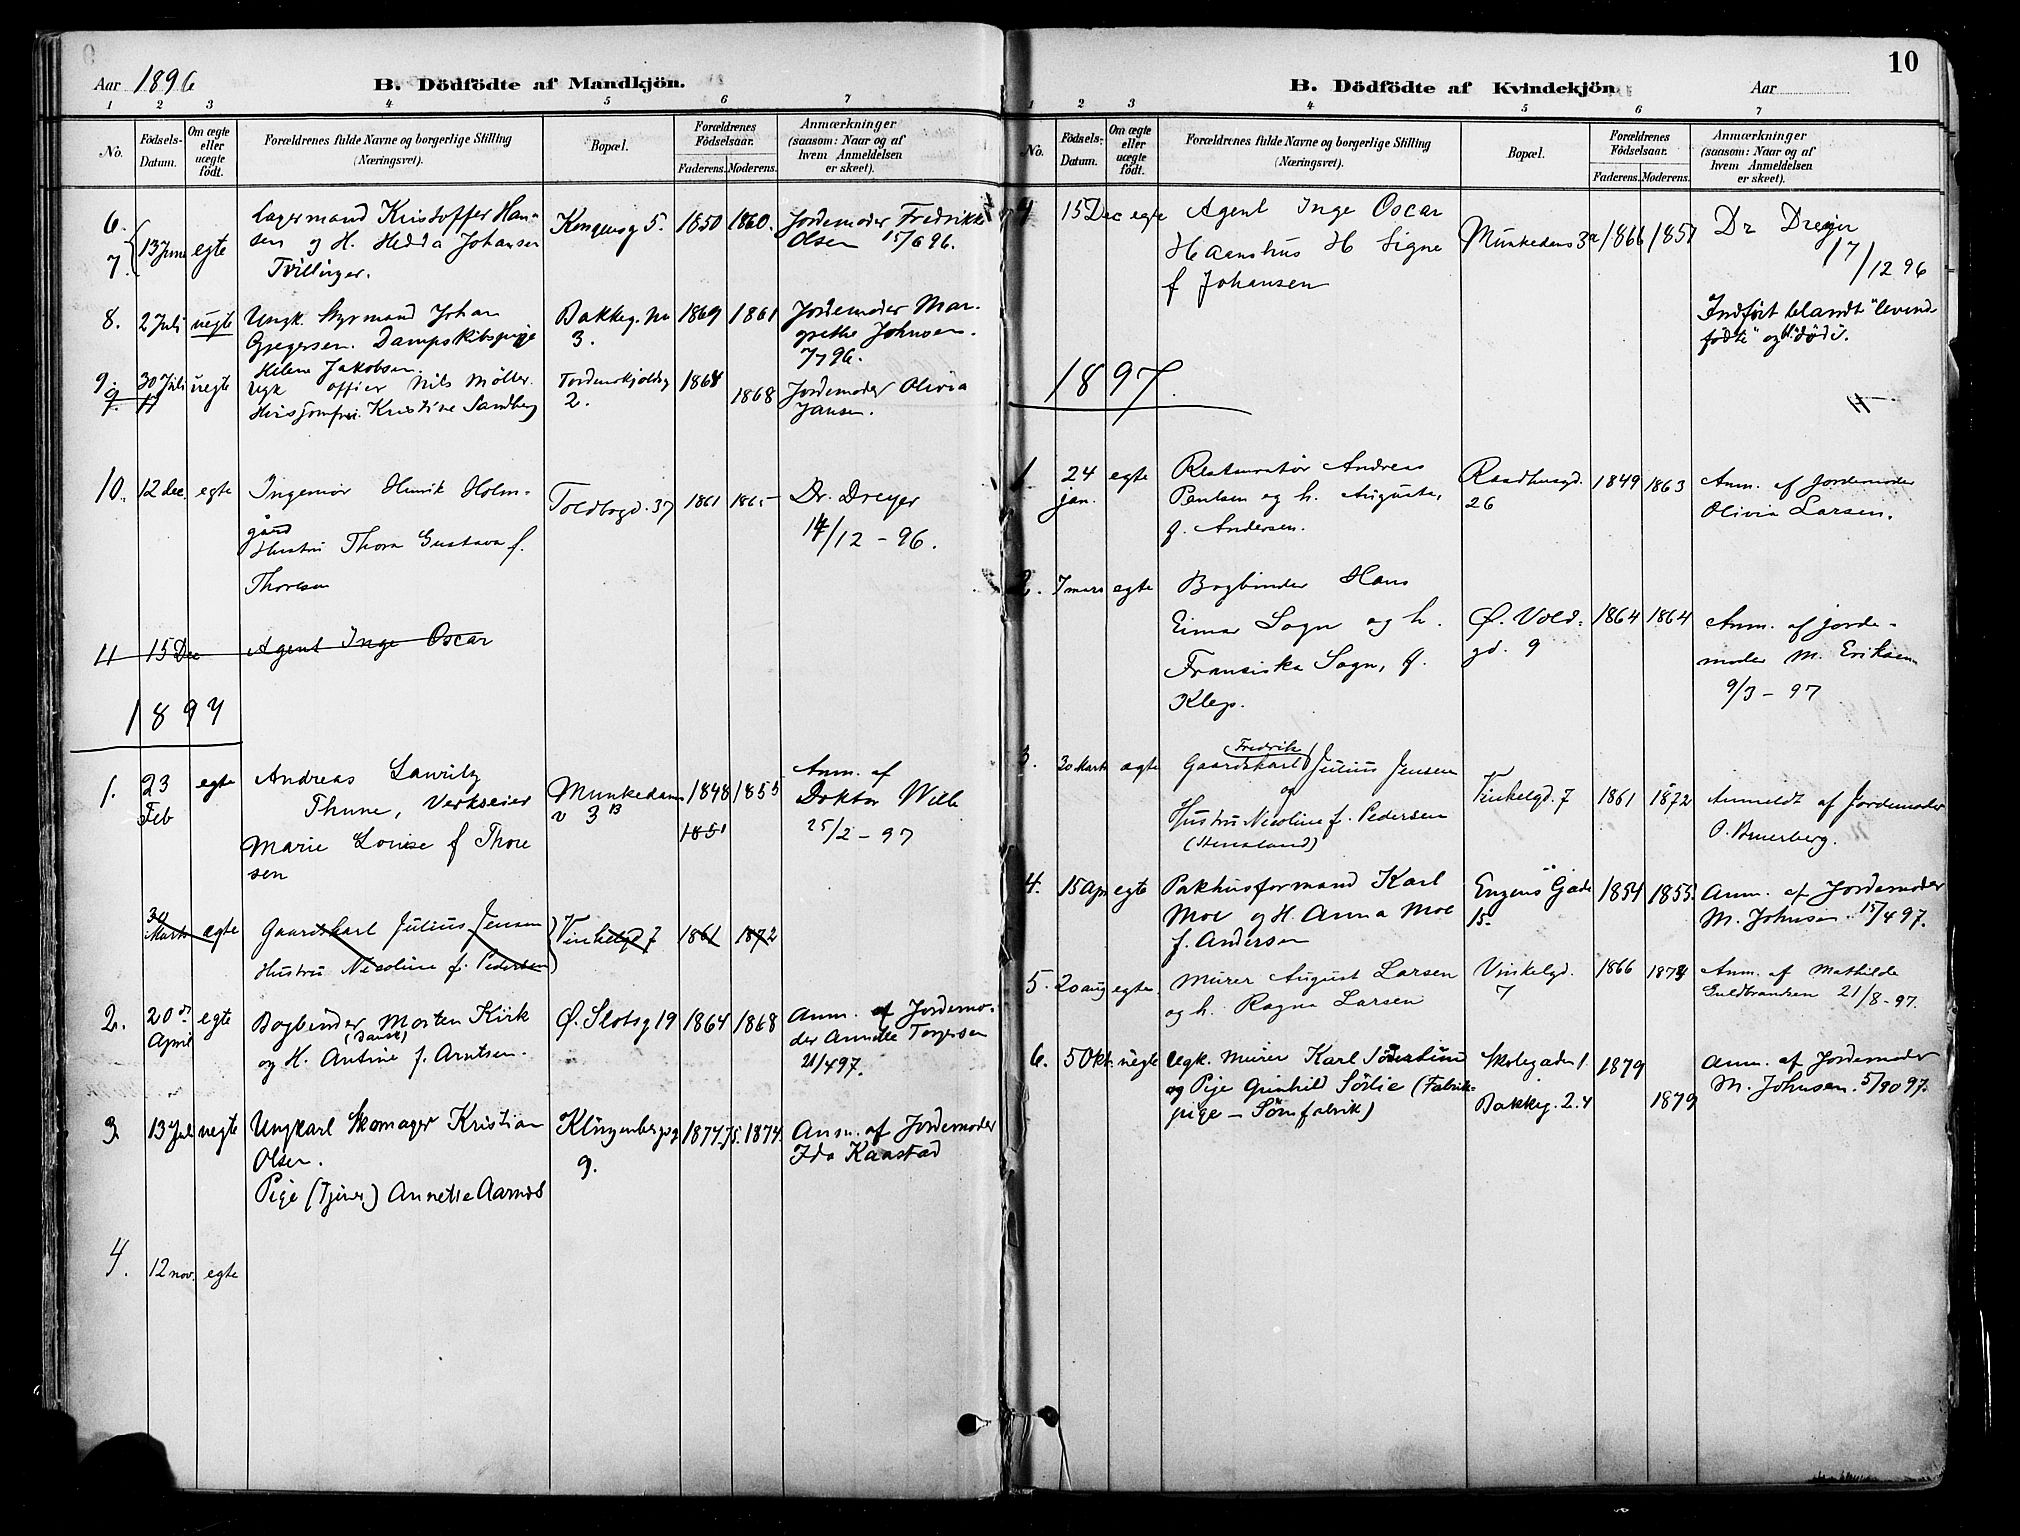 Aar 1896
B. Dödfödte af Mandkjön.
1 2 3 4 5 6 7
No.
Födsels-Datum.
Om ægte eller uægte födt.
Forældrenes fulde Navne og borgerlige Stilling (Næringsvei).
Bopæl.
Forældrenes Födselsaar.
Faderens. Moderens.
Anmærkninger (saasom: Naar og af hvem Anmeldelsen er skeet).
6. 7. 13 Juni egte
Lagermand Kristoffer Han-
sen og H. Hedda Johansen
Tvillinger.
Kongensg 5. 1850 1860.
Jordemoder Fredrikke
Olsen 15/6 96.
8. 2 Juli uegte
Ungk. Styrmand Johan
Gregersen. Dampskibspige
Helene Jakobsen
Bakkeg. No
3.
1869 1861
Jordemoder Mar-
grethe Johnsen.
7/7 96.
9. 30 Juli uegte
Ugk offiser Nils Möller.
Husjomfru. Kristine Sandberg
Tordenskjoldsg
2.
1868
1868
Jordemoder Olivia
Jansen.
10. 12 dec. egte
Ingeniør Henrik Holm-
gård
Hustru Thora Gustava f.
Thoresen
Toldbogd. 37 1861 1865
Dr. Dreyer
14/12 - 96.
11 15 Dec Agent Inge Oscar
1897
1. 23 Feb egte
Andreas Lauritz
Thune, Verkseier
Marie Louise f Thore
sen
Munkedams
v 3B
1848 1855
1851
Anm. af
Doktor Wille
25/2 - 97
30 Marts ægte
Gaardskarl Julius Jensen
Hustru Nicoline f. Pedersen
Vinkelgd 7 1861 1872
2. 20de April egte
Bogbinder Morten Kirk
(Dansk)
og H. Antine f. Arntsen.
Ø. Slotsg 19 1864 1868
Anm. af Jordemo-
der Annette Torgersen
21/4 97.
3. 13 Jul uegte
Ungkarl Skomager Kristian
Olsen.
Pige (Tjener) Annette Aarnes
Klingenbergsg
9.
1874/75. 1874.
Anm. af Jordemoder
Ida Kaastad
4. 12 nov. egte
10
B. Dödfödte af Kvindekjön
Aar
1 2 3 4 5 6 7
No.
Födsels-Datum.
Om ægte eller uægte födt.
Forældrenes fulde Navne og borgerlige Stilling (Næringsvei).
Bopæl.
Forældrenes Födselsaar.
Faderens. Moderens.
Anmærkninger (saasom: Naar og af hvem Anmeldelsen er skeet).
4 15 Dec egte
Agent Inge Oscar
Haanshus H Signe
f Johansen
Munkedams 3a 1866 1857
Dr Dreyer
17/12 96
Indført blandt "levende
fødte" og "døde".
1897.
1. 24 jan. egte
Restauratør Andreas
Paulsen og h. Augusta,
f. Andersen.
Raadhusgd.
26
1849 1863
Anm. af Jordemoder
Olivia Larsen.
2. 7 mars egte
Bogbinder Hans
Eimar Sogn og h.
Fransiska Sogn, f.
Klep.
Ø. Vold-
gd. 9
1864 1864
Anm. af jorde-
moder M. Eriksen
9/3 - 97
3. 30 Marts ægte
Fredrik
Gaardskarl Julius Jensen
og
Hustru Nicoline f. Pedersen
(Stensland)
Vinkelgd. 7 1861 1872
Anmeldt af Jordemoder
O. Bruerberg.
4. 15 Apr egte
Pakhusformand Karl
Moe og H. Anna Moe
f. Andersen
Engens Gade
15
1854 1855.
Anm. af Jordemoder
M. Johnsen. 15/4 97.
5. 20 aug egte.
Murer August Larsen
og h. Ragna Larsen
Vinkelgd.
7
1866 1874
Anm. af Mathilde
Guldbrandsen 21/8-97.
6. 5 Okt. uegte
Ugk. Murer Karl Söderlund
og Pige Gunhild Sörlie (Fabrik-
pige - Sömfabrik)
Skolegaden 1.
Bakkeg. 24
1879
1879
Anm. af Jordemoder
M. Johnsen. 5/10 97.